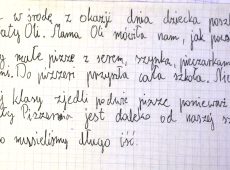 - w środę z okazji dnia dziecka posz
aty Oli. Mama Oli mówiła nam, jak
małe pizze z serem, szynką, pieczarkami
Do pizzeri przyszła cała szkoła. Nie
klasy zjedli podwe pizze ponieważ
Pizzeria jest daleko od naszej sz
o musieliśmy długo iść.